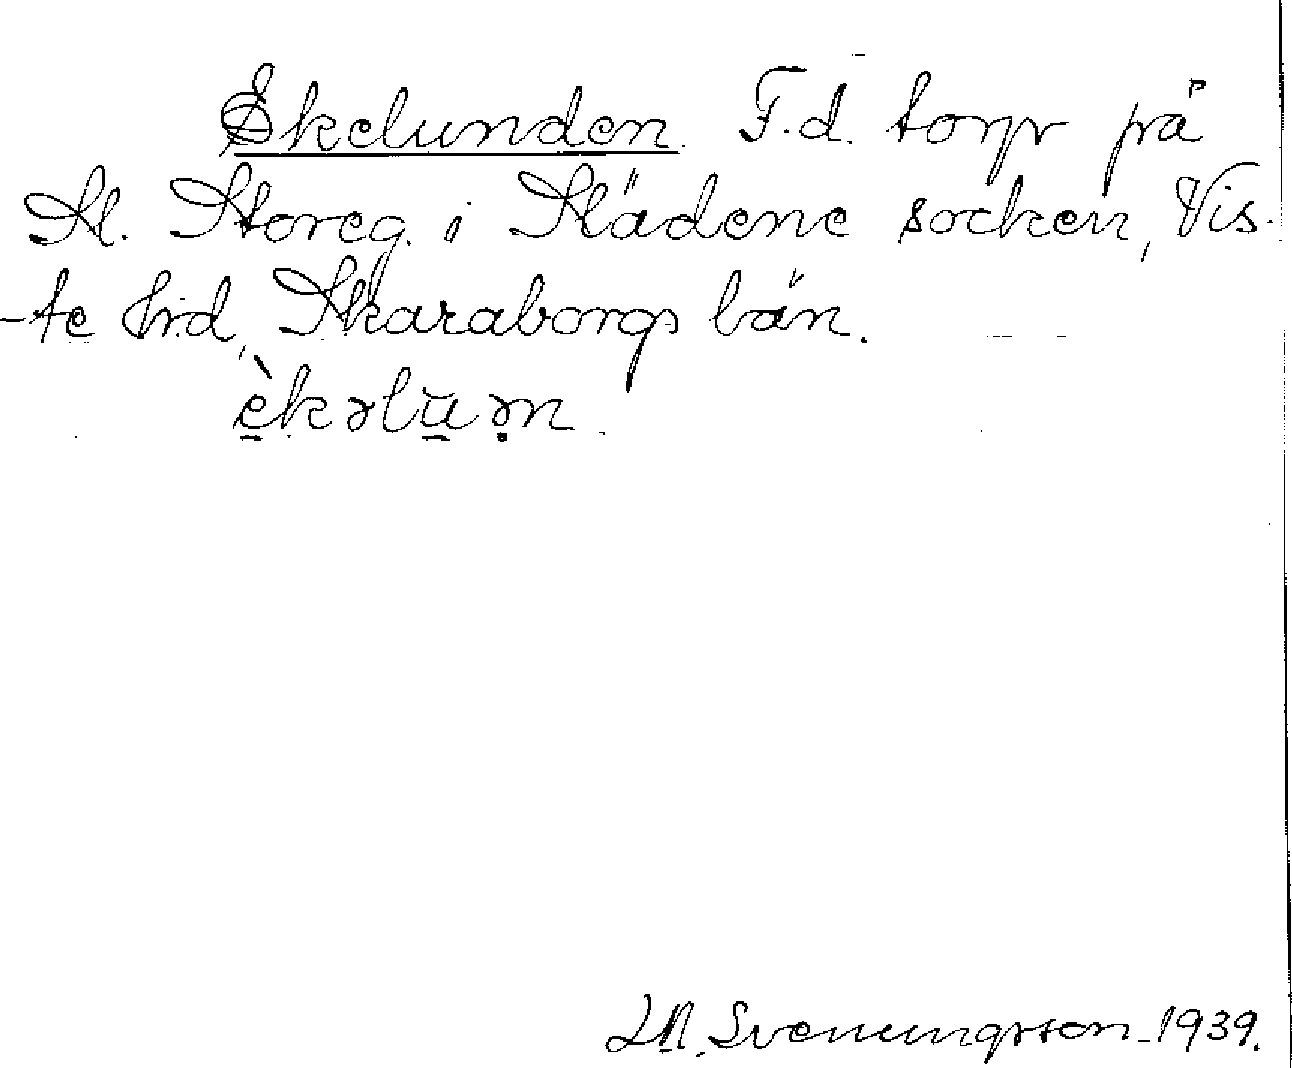 Ekelunden. F.d. torp på
St. Storeg. i Slädene socken, Vis-
-te hrd, Skaraborgs län.
èkəlu̲ən.
Svenungsson 1939.